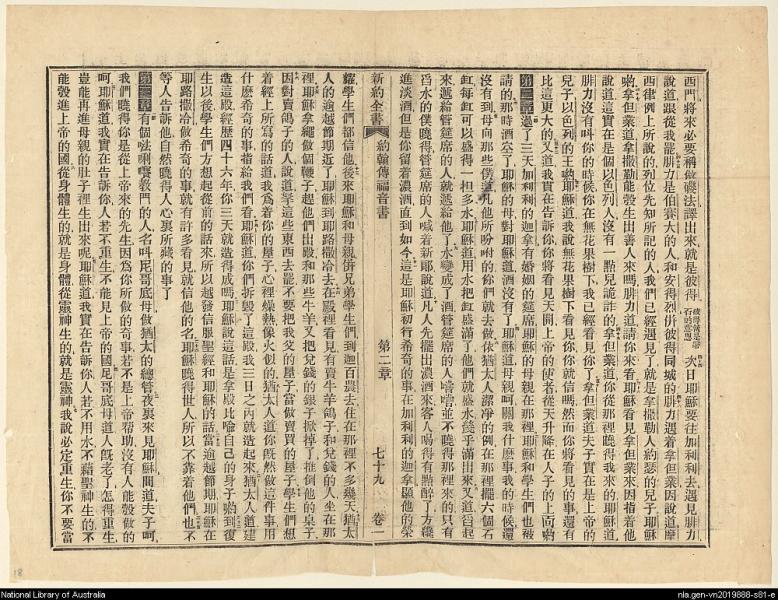 西門將來必要稱做磯法譯出來就是彼得 彼得就是磐石的意思 次日耶穌要往加利利去遇見腓力
說道跟從我罷腓力是伯賽大的人和安得烈併彼得同城的腓力遇着拿但業因說道摩
西律例上所說的列位先知所記的人我們已經遇見了就是拿撒勒人約瑟的兒子耶穌
喲拿但業道拿撒勒能彀生出善人來嗎腓力道請你來看耶穌看見拿但業來因指着他
說道這實在是個以色列人沒有一點兒詭詐的拿但業道你從那裡曉得我來的耶穌道
腓力沒有叫你的時候你在無花果樹下我已經看見你了拿但業道夫子實在是上帝的
兒子以色列的王喲耶穌道我說無花果樹下看見你你就信嗎然而你將看見的事還有
比這更大的又道我實在告訴你你將看見天開上帝的使者從天升降在人子的上面喲
第二章過了三天加利利的迦拿有婚姻的筵席耶穌的母親在那裡耶穌和學生們也被
請的那時酒空了耶穌的母對耶穌道酒沒有了耶穌道母親呵關我什麼事我的時候還
沒有到母向那些僕道凡他所吩咐的你們就去做依猶太人潔凈的例在那裡擺六個石
缸每缸可以盛得一担多水耶穌道用水把缸盛滿了他們就盛水幾乎滿出來又道舀起
來遞給管筵席的人就遞給他了水變成了酒管筵席的人嘗嘗並不曉得那裡來的只有
舀水的僕曉得管筵席的人喊着新郞說道凡人先擺出濃酒來客人喝得有點醉了方纔
進淡酒但是你留着濃酒直到如今這是耶穌初行希奇的事在加利利的迦拿顯他的榮
新約全書 約翰傳福音書 第二章 七十九 卷一
耀學生們都信他後來耶穌和母親併兄弟學生們到迦百農去住在那裡不多幾天猶太
人的逾越節期近了耶穌到耶路撒冷去在殿裡看見有賣牛羊鴿子和兌錢的人坐在那
裡耶穌拿繩做個鞭子趕他們出殿和那些牛羊又把兌錢的銀子掀掉了推倒他的桌子
因對賣鴿子的人說道拏這些東西去罷不要把我父的屋子當做賣買的屋子學生們想
着經上所寫的話道我爲着你的屋子心裡燥熱像火似的猶太人道你旣然做這件事用
什麼希奇的事指給我們看耶穌道你們拆毀了這殿我三日之內就造起來猶太人道建
造這殿經歷四十六年你三天就造得成嗎耶穌說這話是拿殿比喻自己的身子喲到復
生以後學生們方想起從前的話來所以越發信服聖經和耶穌的話當逾越節期耶穌在
耶路撒冷做希奇的事就有許多看見就信他的名耶穌曉得世人所以不靠着他們也不
等人告訴他自然曉得人心裏所藏的事了
第三章有個𠵽唎㘔敎門的人名叫尼哥底母做猶太的總管夜裏來見耶穌間道夫子呵
我們曉得你是從上帝來的先生因爲你所做的奇事若不是上帝帮助沒有人能彀做的
呵耶穌道我實在告訴你人若不重生不能見上帝的國尼哥底母道人旣老了怎得重生
豈能再進母親的肚子裡生出來呢耶穌道我實在告訴你人若不用水不藉聖神生的不
能彀進上帝的國從身體生的就是身體從靈神生的就是靈神我說必定重生你不要當
18
National Library of Australia
nla.gen-vn2019888-s81-e